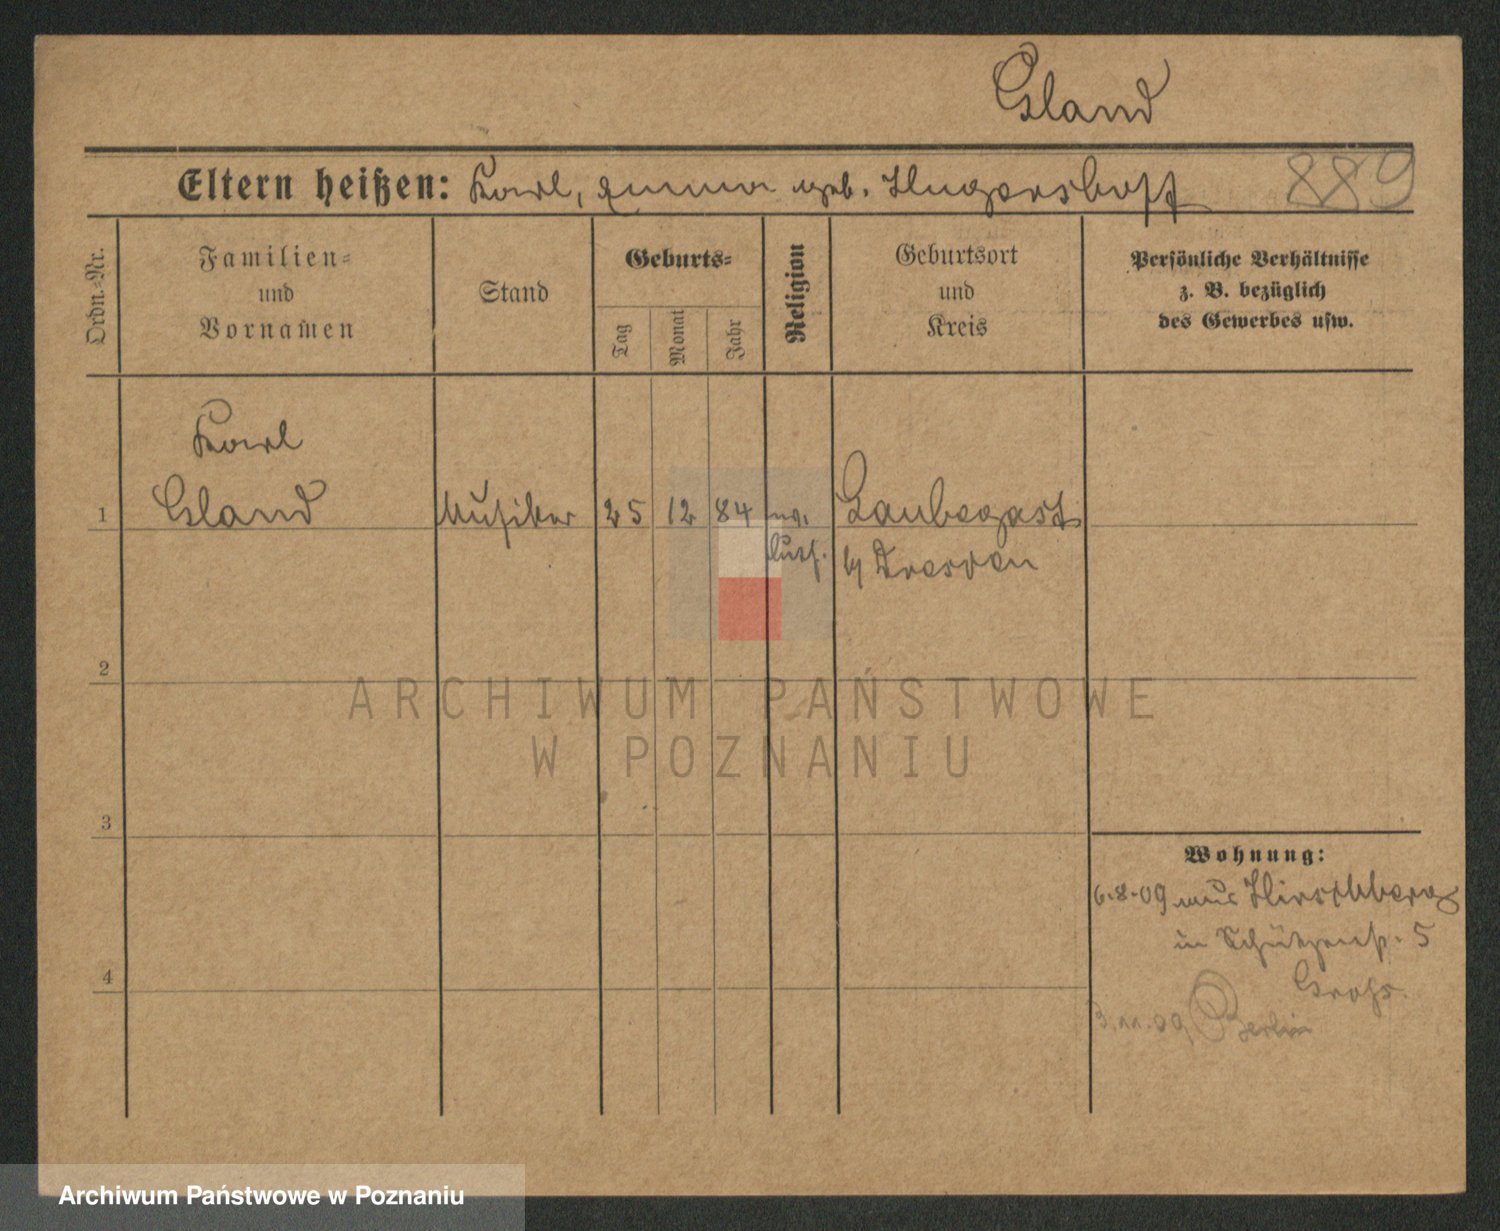 Gland
889
Eltern heißen: Karl, Emma geb. Hugershoff
Ordn.-Nr.
Familien-
und
Vornamen
Stand
Geburts-
Tag
Monat
Jahr
Religion
Geburtsort
und
Kreis
Persönliche Verhältnisse
z. B. bezüglich
des Gewerbes usw.
Karl
1 Gland Musiker 25 12 84 ev. Laubegast
luth. b/ Dresden
2
ARCHIWUM PAŃSTWOWE
W POZNANIU
3
Wohnung:
6.8.09 aus Hirschberg
in Schützenstr. 5
4
3.11.09 Berlin
Archiwum Państwowe w Poznaniu